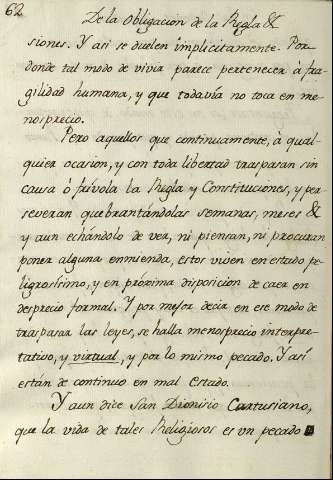 62
De la Obligacion de la Regla &
siones. Y asi se duelen implicitamente. Por
donde tal modo de vivir parece pertenecer à fra-
gilidad humana, y que todavía no toca en me-
nosprecio.
Pero aquellos que continuamente, à qual-
quier ocasion, y con toda libertad traspasan sin
causa ò frívola la Regla y Constituciones, y per-
severan quebrantándolas semanas, meses &
y aun echándolo de ver, ni piensan, ni procuran
poner alguna enmienda, estos viven en estado pe-
ligrosissimo, y en próxima disposicion de caer en
desprecio formal. Y por mejor decir en ese modo de
traspasar las leyes, se hálla menosprecio interpre-
tativo, y virtual, y por lo mismo pecado. Y asi
están de continuo en mal estado.
Y aun dice San Dionisio Cartusiano,
que la vida de tales Religiosos es vn pecado